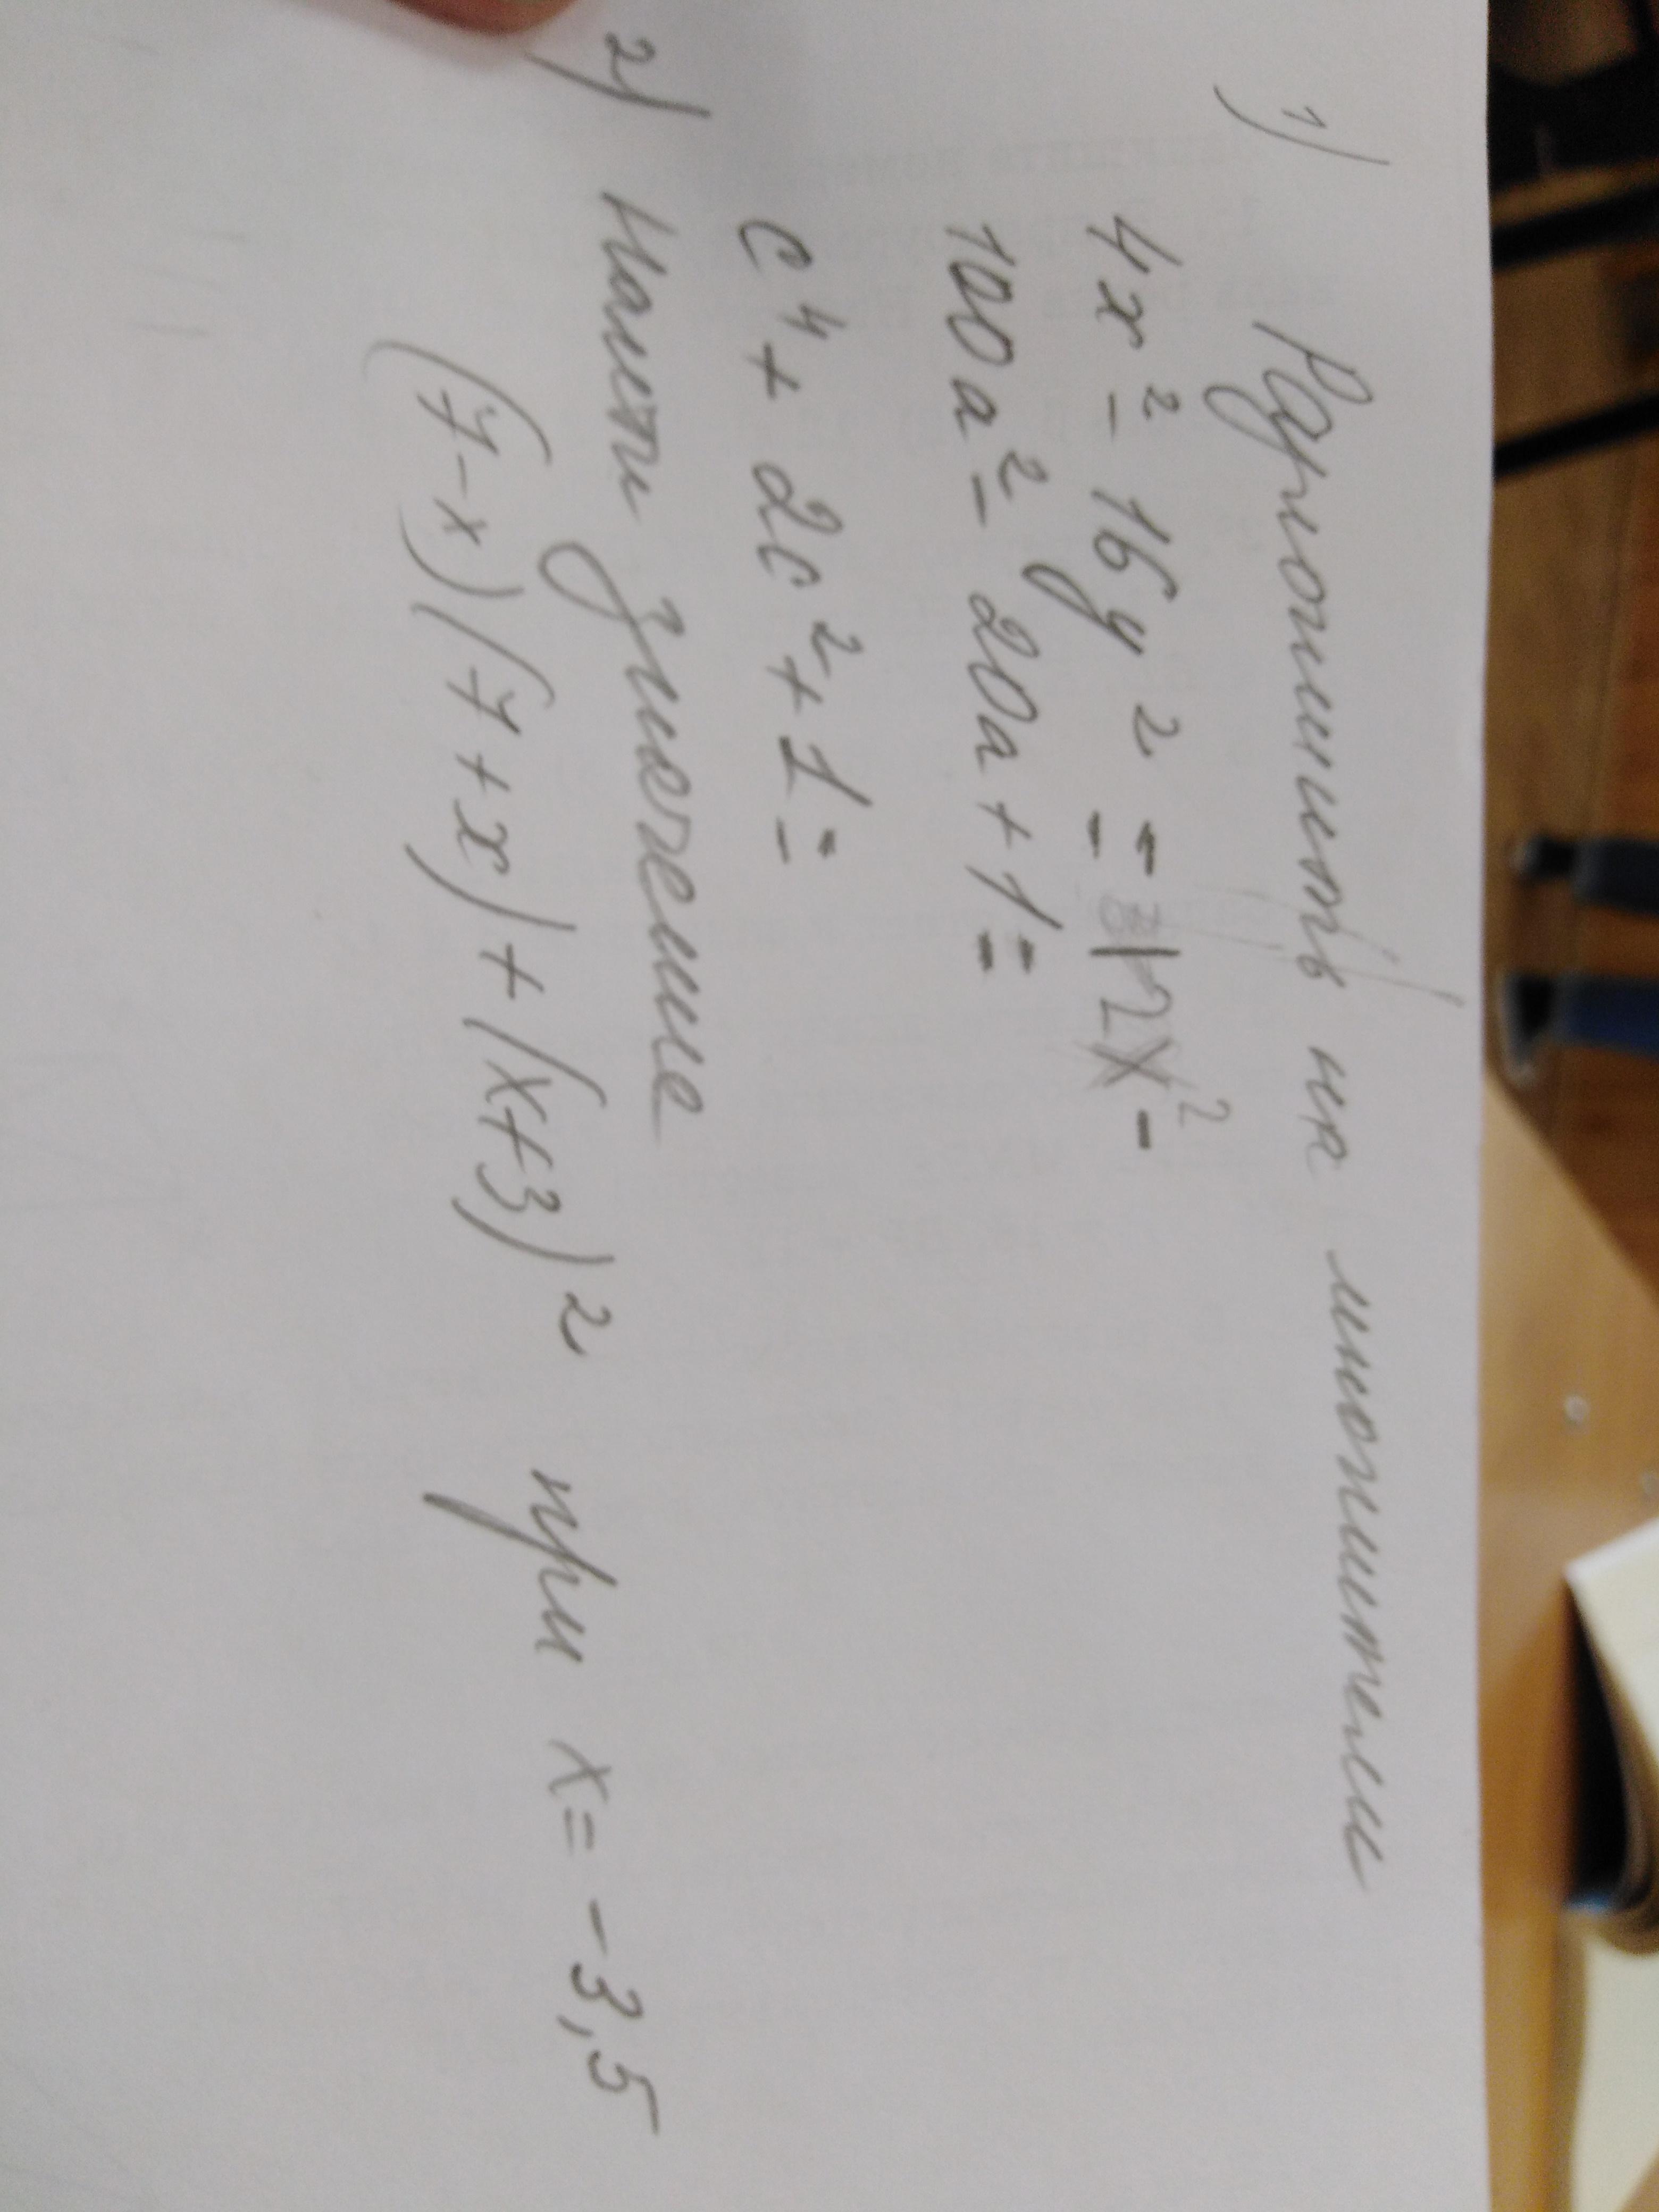 1) Разложить на множители
4x² - 16y² = |2x² -
100a² - 20a + 1 =
c⁴ + 2c² + 1 =
2) Найти значение
(7-x)(7+x)+(x+3)² при x = -3,5